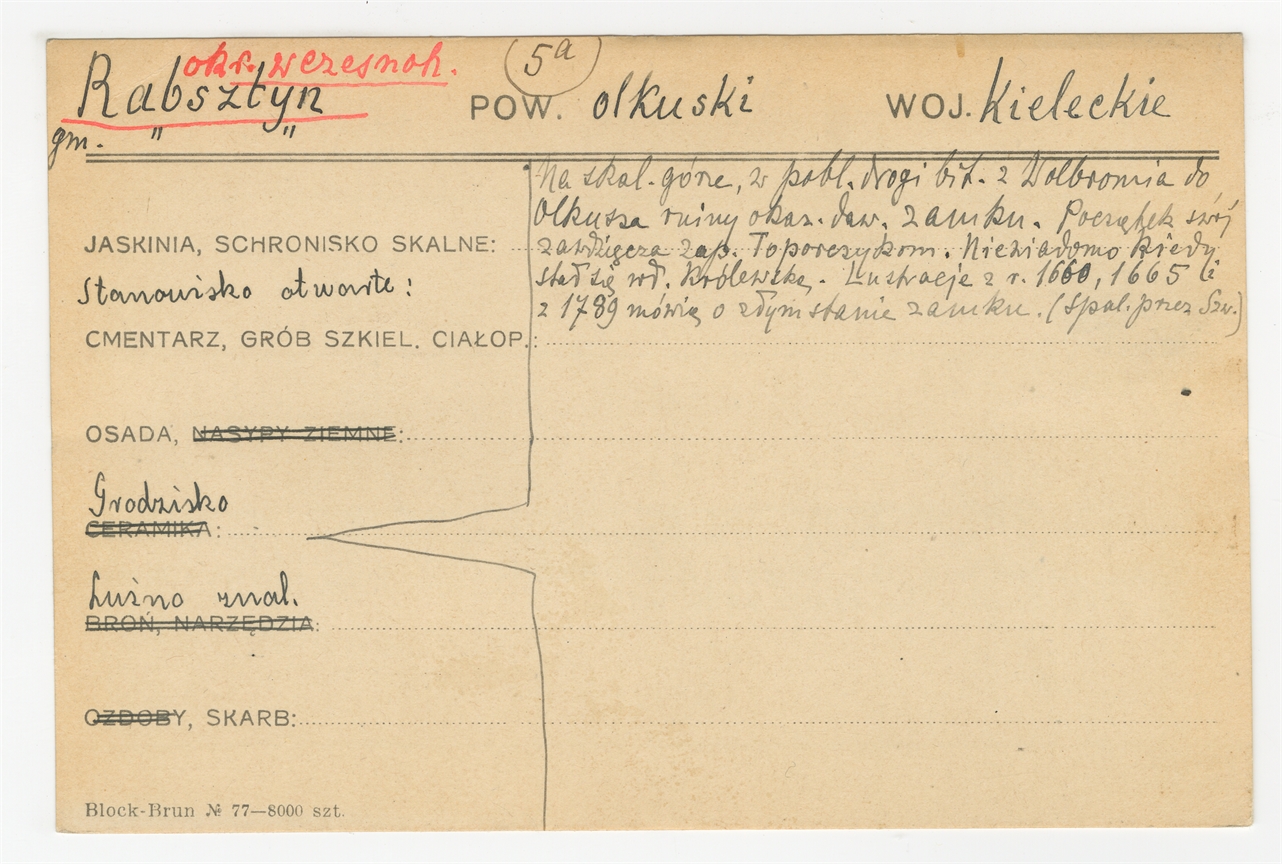 okr. wczesnoh. (5a)
Rabsztyn POW. olkuski WOJ. Kieleckie
gm. " "
Na skal. górze, w pobl. drogi bit. z Wolbromia do
Olkusza ruiny okaz. daw. zamku. Początek swój
JASKINIA, SCHRONISKO SKALNE: zawdzięcza zap. Toporczykom. Niewiadomo kiedy
Stanowisko otwarte: stał się wł. Królewską. Lustracje z r. 1660, 1665 i
z 1789 mówią o złym stanie zamku. (Spal. przez Szw.)
CMENTARZ, GRÓB SZKIEL. CIAŁOP.:
OSADA, NASYPY ZIEMNE:
Grodzisko
CERAMIKA:
Luźno znal.
BROŃ, NARZĘDZIA:
OZDOBY, SKARB:
Block-Brun № 77—8000 szt.